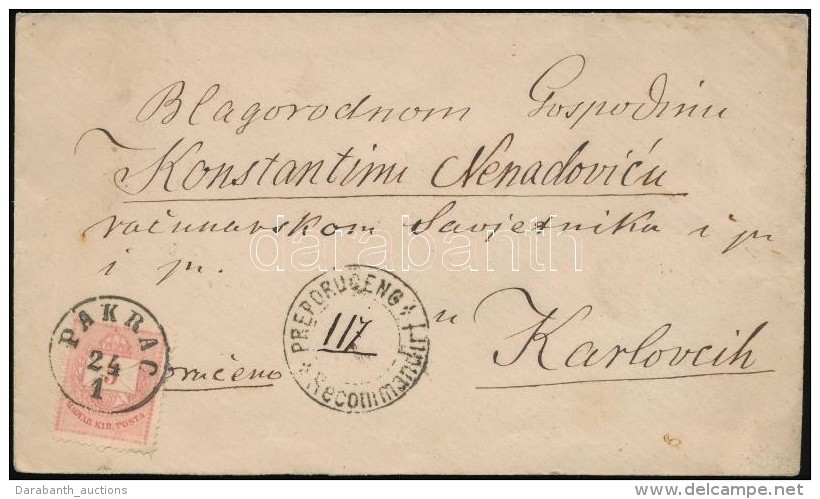 Blagorodnom Gospodinu
Konstantinu Nenadoviću
računarskom Savjetniku i pr
i pr.
u
Karlovcih
PREPORUČENO
Recommandirt
117
PAKRAC
24
1
5
MAGYAR KIR. POSTA
oručeno
darabanth
Darabanth_auctions
delcampe.net